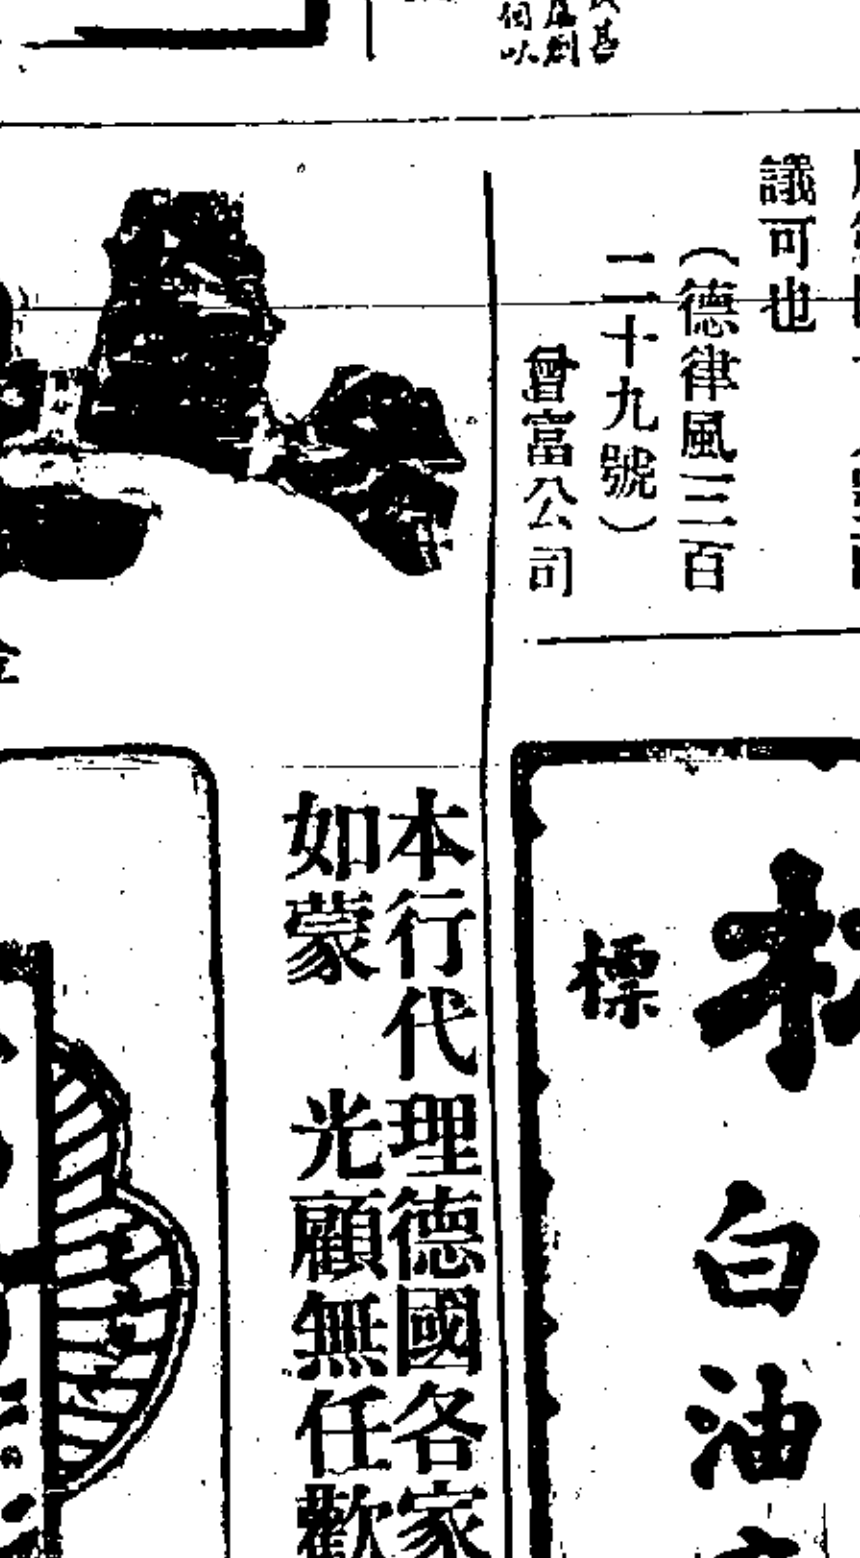 議可也
（德律風三百
二十九號）
曾富公司
標
白油
本行代理德國各家
如蒙　光顧無任歡